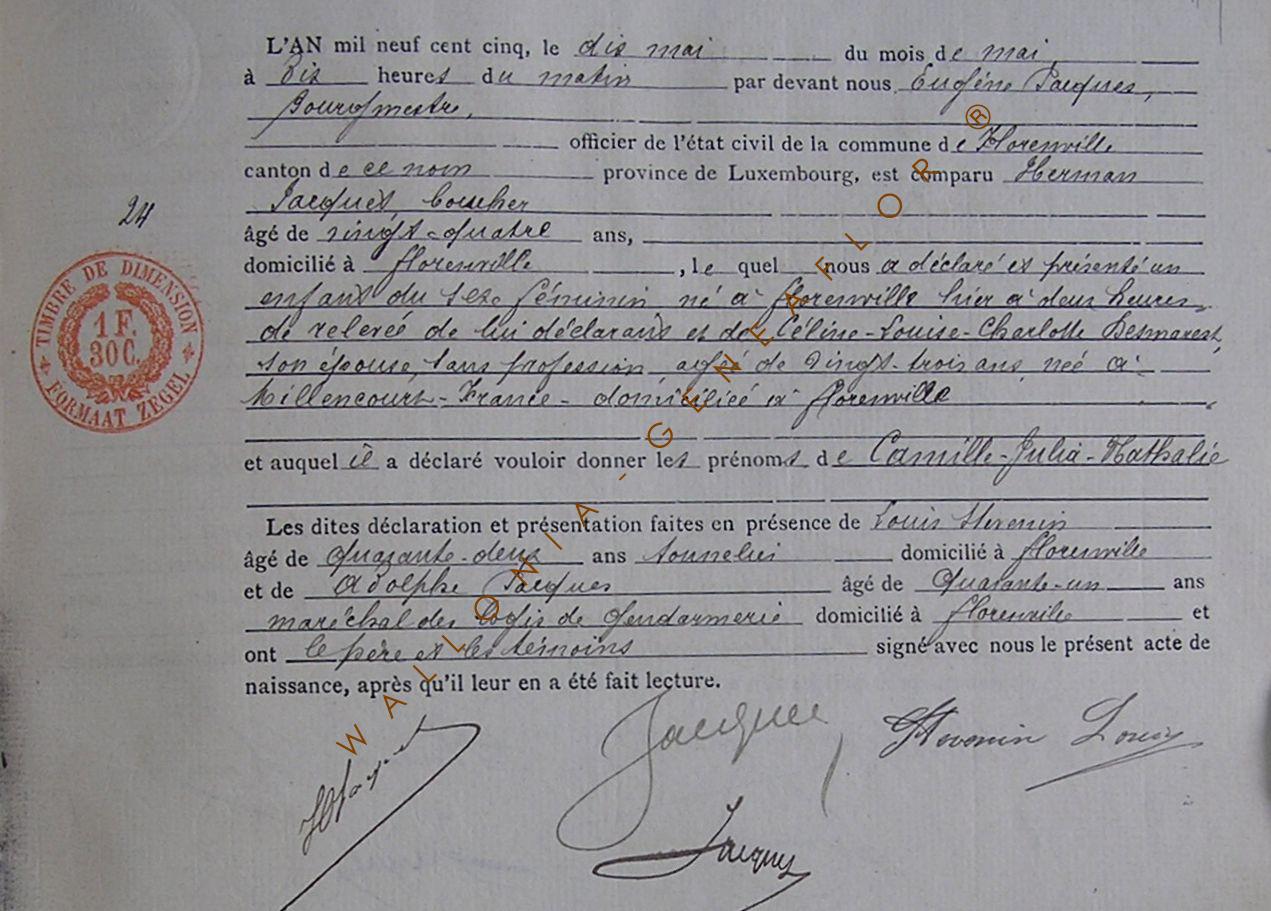 L'AN mil neuf cent cinq, le dix mai du mois de mai,
à Dix heures du matin par devant nous Eugène Jacques,
Bourgmestre,
officier de l'état civil de la commune de Florenville
canton de ce nom province de Luxembourg, est comparu Herman
Jacques
24
âgé de vingt-quatre ans,
domicilié à florenville, lequel nous a déclaré et présenté un
enfant du sexe féminin né à florenville hier à deux heures
de relevée de lui déclarant et de Céline-Louise-Charlotte Desmarest,
son épouse, sans profession, agée de vingt-trois ans, née à
Millencourt-France- domiciliée à florenville
et auquel il a déclaré vouloir donner les prénoms de Camille-Julia-Nathalie
Les dites déclaration et présentation faites en présence de Louis Stevenin
âgé de quarante-deux ans domicilié à florenville
et de Adolphe Jacques âgé de quarante-un ans
maréchal des logis de gendarmerie domicilié à florenville et
ont le père et les témoins signé avec nous le présent acte de
naissance, après qu'il leur en a été fait lecture.
TIMBRE DE DIMENSION
1 F.
30 C.
FORMAAT ZEGEL
Jacques
Stevenin Louis
Jacques
WALLONIA-GENEAFLOR®